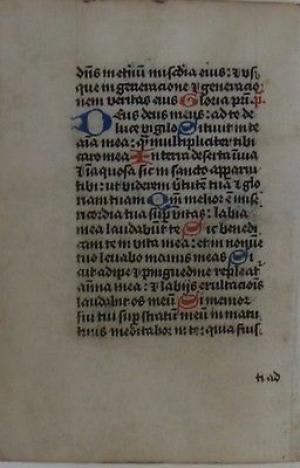 dn̄s in et̄nū mīsc̄dia eius: ⁊ vsq̄
que in generacione ⁊ generacio
nem veritas eius Gloria pr̄i. p.
Deus deus meus: ad te de
luce vigilo Sitiuit in te
aīa mea: qm̄ multipliciter tibi
caro mea In terra deserta īuia
⁊ īaquosa sic in sancto apparui
tibi: ut viderem v̄tutē tuā ⁊ glo
riam tuam Qm̄ melior ē mīse
ricordia tua sup vitas: labia
mea laudabūt te Sic benedi
cam te in vita mea: et in noīe
tuo leuabo manus meas Si
cut adipe ⁊ pinguedine repleat̄
aīma mea: ⁊ labijs exultacioīs
laudabit os meū Si memor
fui tui sup stratū meū in matu
tinis meditabor in te: quia fuis
ti ad